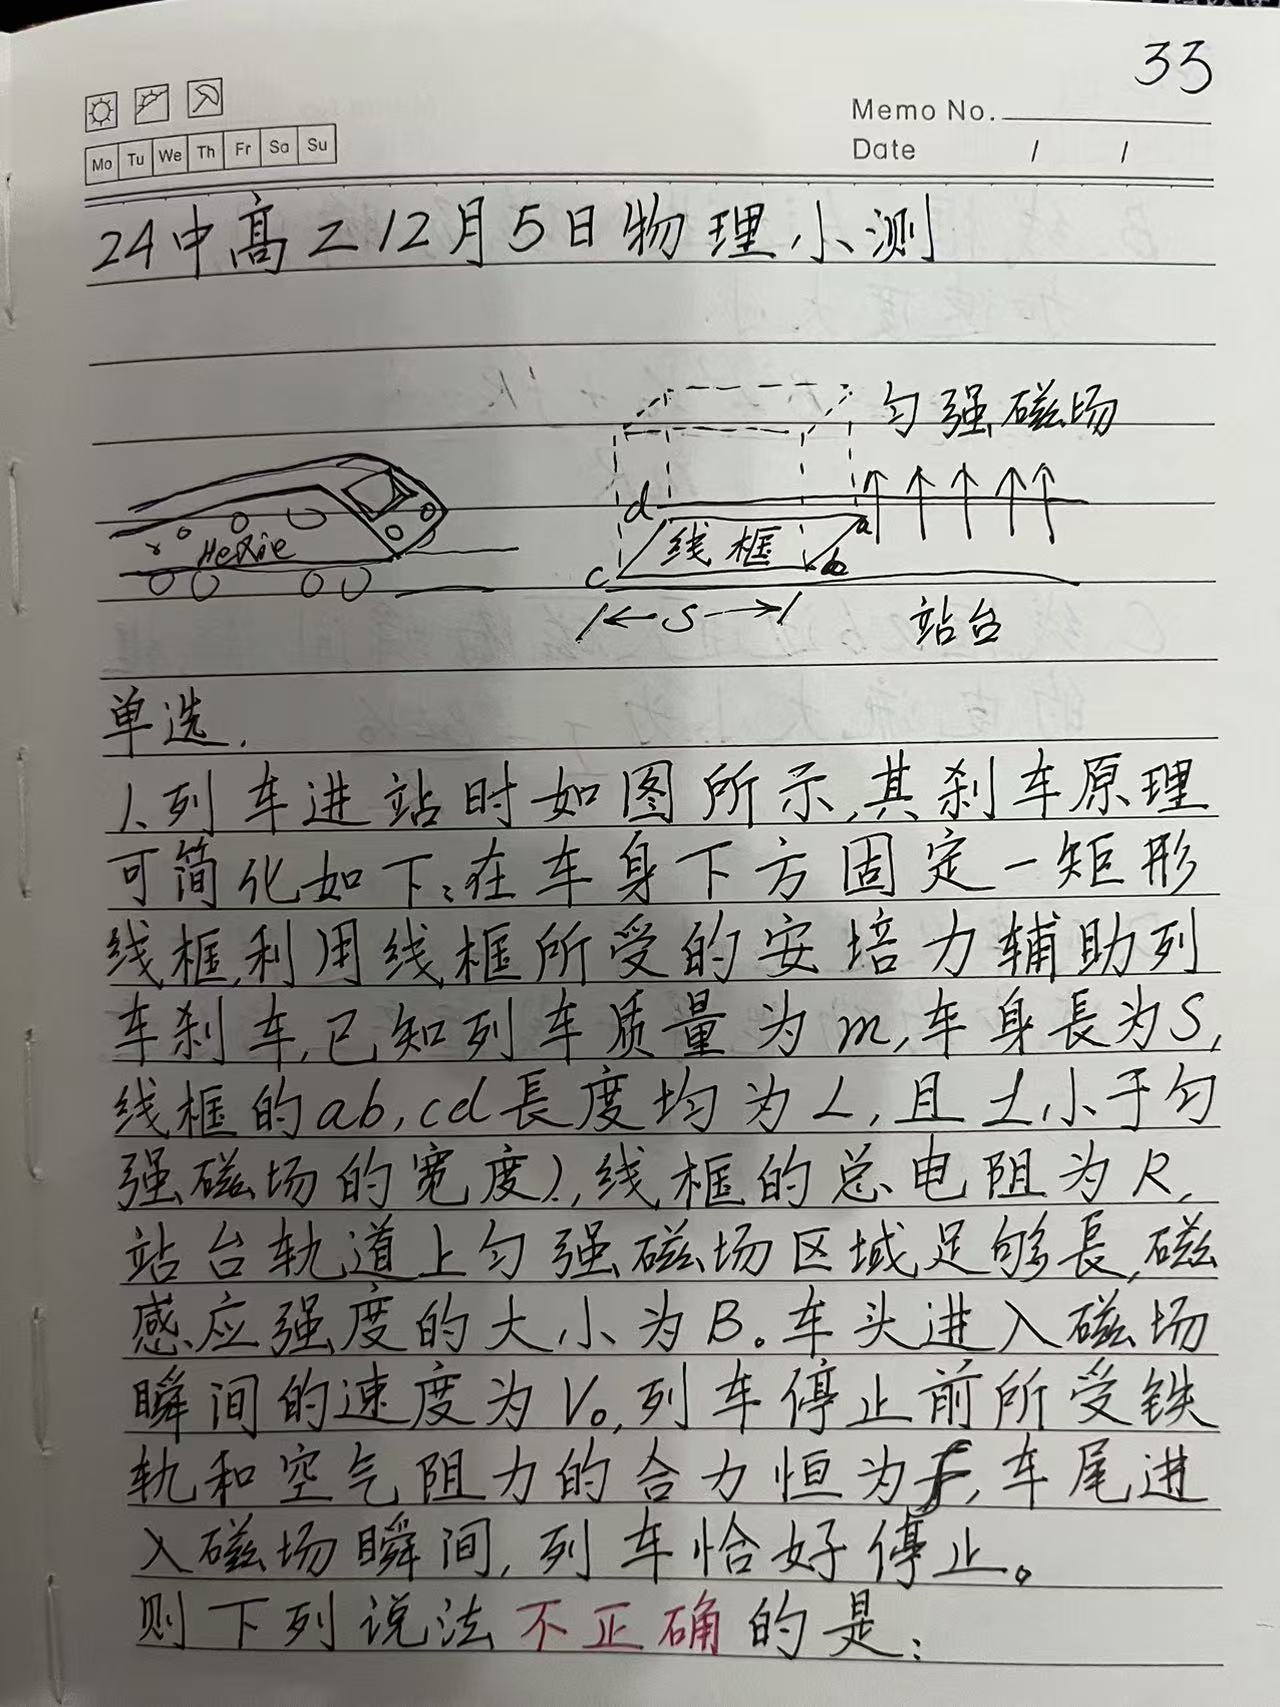 33
Memo No.
Date / /
Mo Tu We Th Fr Sa Su
24中高二12月5日物理小测
匀强磁场
d
a
线框
HeXie
c
b
S
站台
单选.
1、列车进站时如图所示,其刹车原理
可简化如下:在车身下方固定一矩形
线框,利用线框所受的安培力辅助列
车刹车,已知列车质量为m,车身長为S,
线框的ab,cd長度均为L,且L小于匀
强磁场的宽度),线框的总电阻为R,
站台轨道上匀强磁场区域足够長,磁
感应强度的大小为B。车头进入磁场
瞬间的速度为V₀,列车停止前所受铁
轨和空气阻力的合力恒为f,车尾进
入磁场瞬间,列车恰好停止。
则下列说法不正确的是: